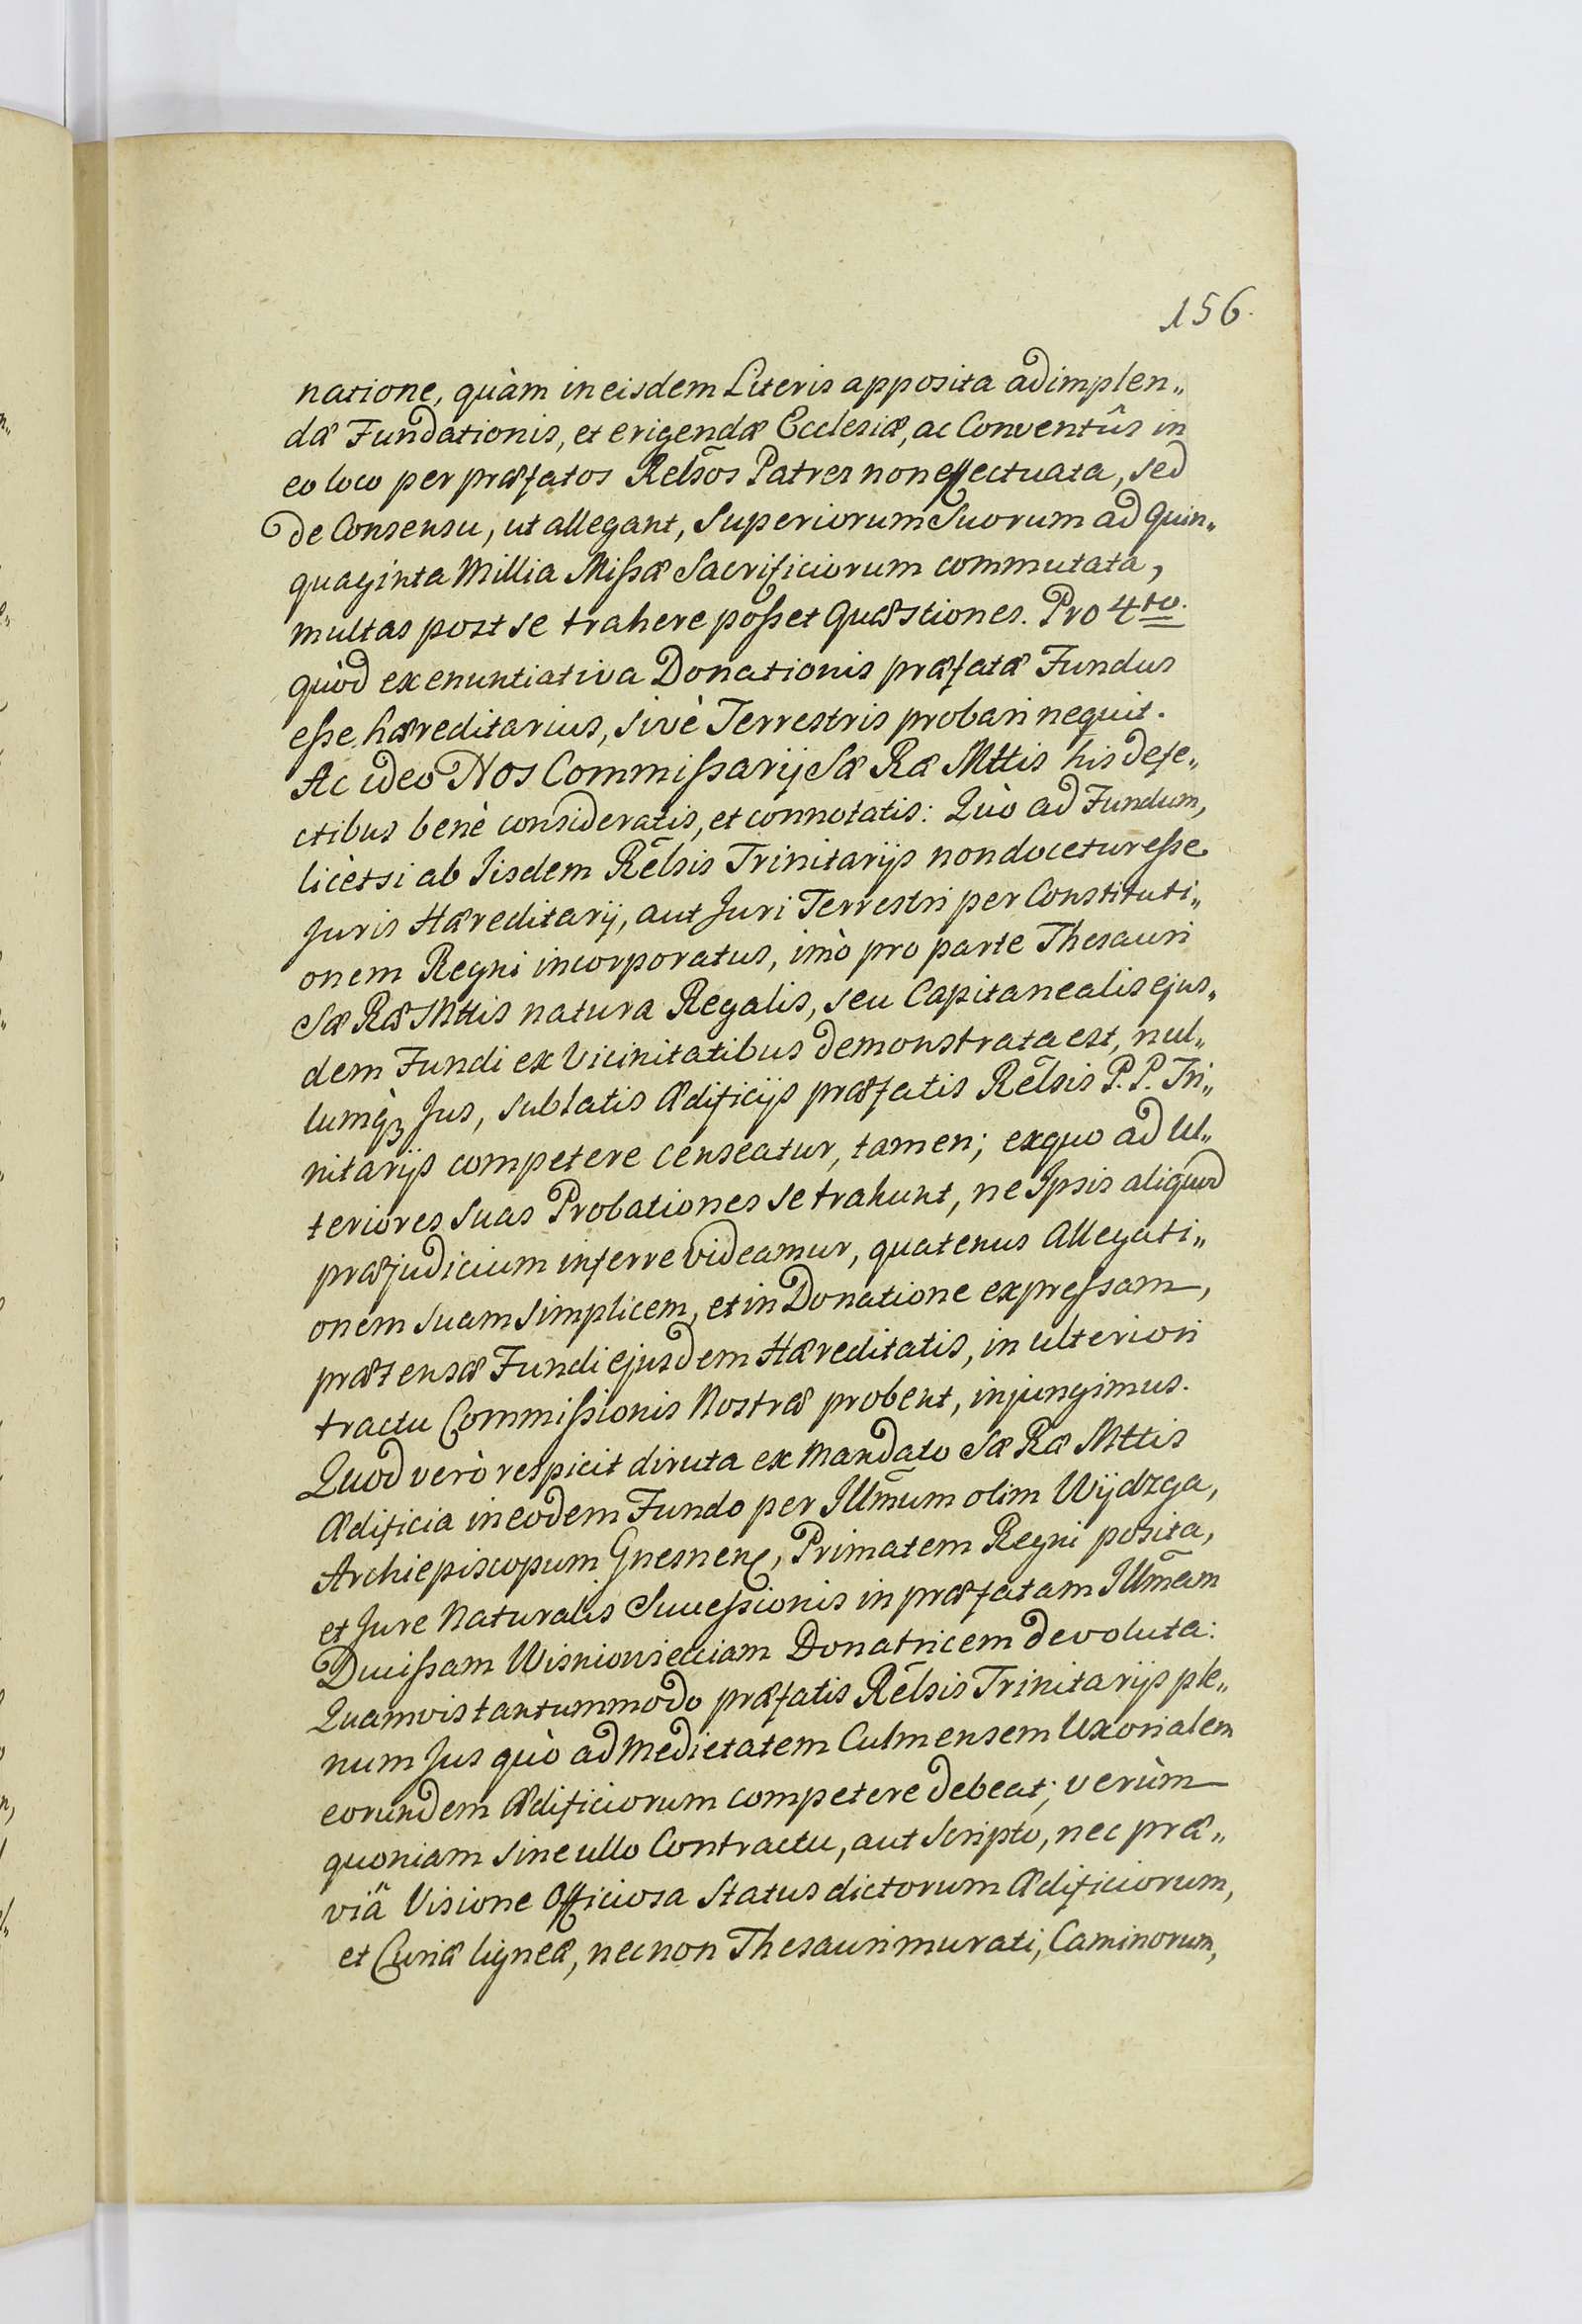 156.
natione, quàm in eisdem Literis apposita adimplen„
dæ Fundationis, et erigendæ Ecclesiæ, ac Conventûs in
eo loco per præfatos Relsõs Patres non effectuata, sed
de Consensu, ut allegant, Superiorum Suorum ad Quin„
quaginta Millia Missæ Sacrificiorum commutata,
multas post se trahere posset Quæstiones. Pro 4to.
quòd ex enuntiativa Donationis præfatæ Fundus
esse hæreditarius, sivè Terrestris probari nequit.
Ac ideo Nos Commissarij Sæ Ræ Mttis his defe„
ctibus benè consideratis, et connotatis: Quò ad Fundum,
licètsi ab Iisdem Rel̃sis Trinitarijs non docetur esse
Juris Hæreditarij, aut Juri Terrestri per Constituti„
onem Regni incorporatus, imò pro parte Thesauri
Sæ Ræ Mttis natura Regalis, seu Capitanealis ejus„
dem Fundi ex Vicinitatibus demonstrata est, nul„
lumq̀ꝫ Jus, sublatis Ædificijs præfatis Rel̃sis P. P. Tri„
nitarijs competere censeatur, tamen; exquo ad Ul„
teriores suas Probationes se trahunt, ne Ipsis aliquod
præjudicium inferre videamur, quatenus Allegati„
onem suam simplicem, et in Donatione expressam,
prætensæ Fundi ejusdem Hæreditatis, in ulteriori
tractu Commissionis Nostræ probent, injungimus.
Quod verò respicit diruta ex Mandato Sæ Ræ Mttis
Ædificia in eodem Fundo per Illm̃um olim Wijdzga,
Archiepiscopum Gnesnen, Primatem Regni posita,
et Jure Naturalis Successionis in præfatam Illm̃am
Ducissam Wisniowiecciam Donatricem devoluta:
Quamvis tantummodo præfatis Rel̃sis Trinitarijs ple„
num Jus quò ad Medietatem Culmensem Uxorialem
eorundem Ædificiorum competere debeat; verùm
quoniam sine ullo Contractu, aut Scripto, nec præ„
viâ Visione Officiosa Status dictorum Ædificiorum,
et Curiæ ligneæ, necnon Thesauri murati, Caminorum,